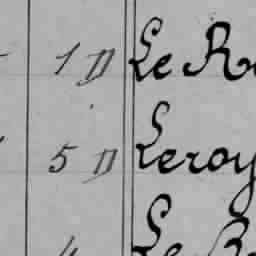 1 D Le R
5 D Leroy
4 Le B